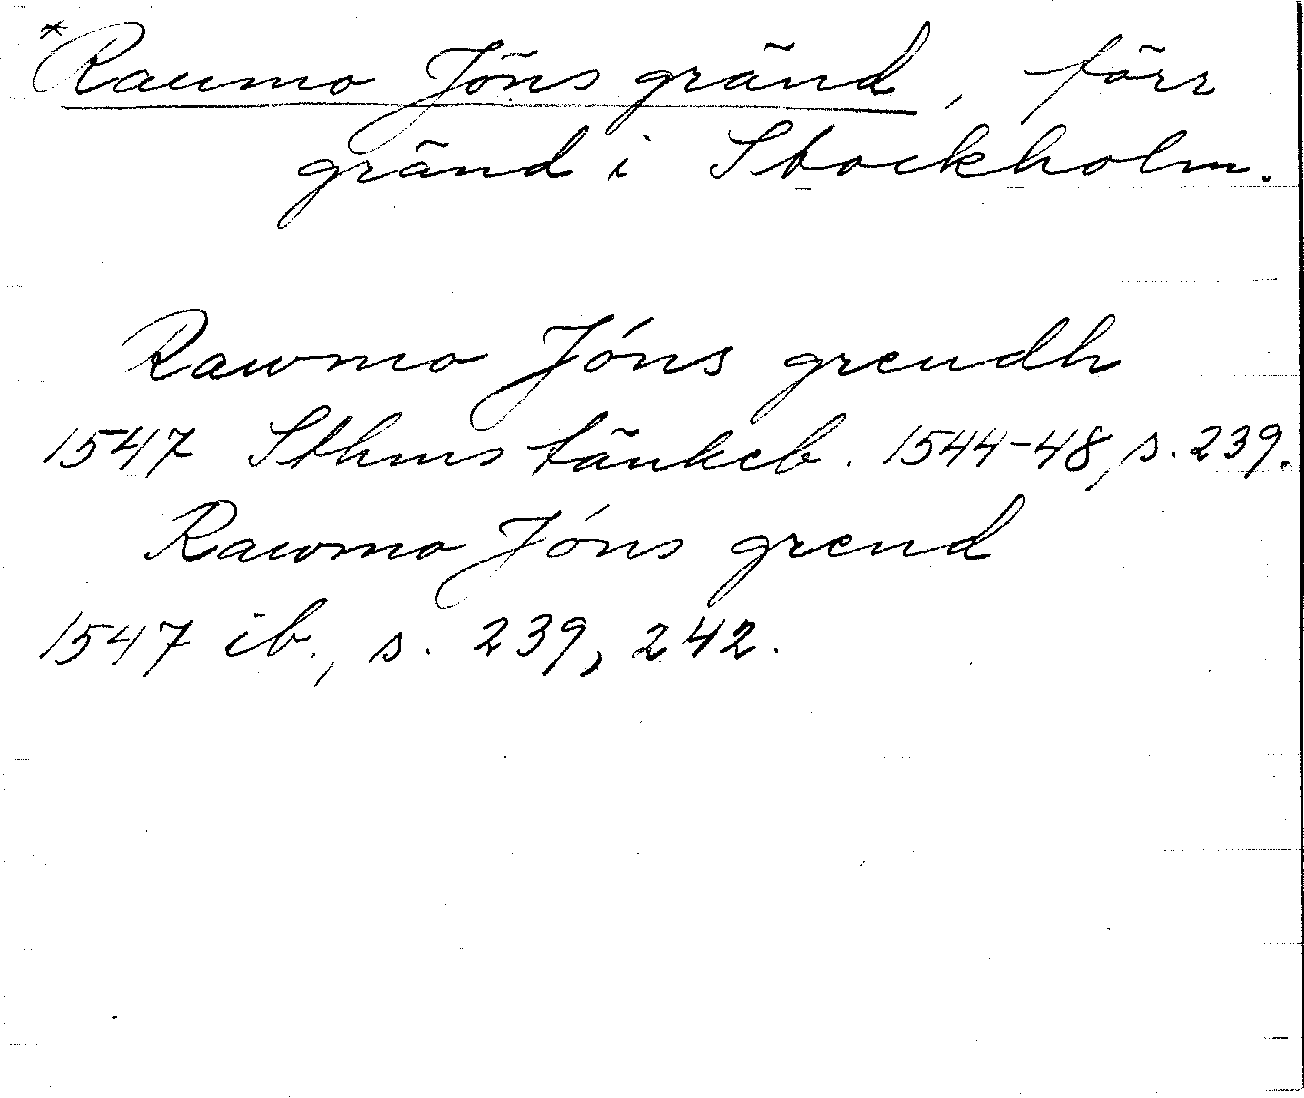 *Raumo Jöns gränd, förr
gränd i Stockholm.
Rawmo Jóns grendh
1547 Sthms tänkeb. 1544-48, s. 239.
Rawmo Jóns grend
1547 ib., s. 239, 242.